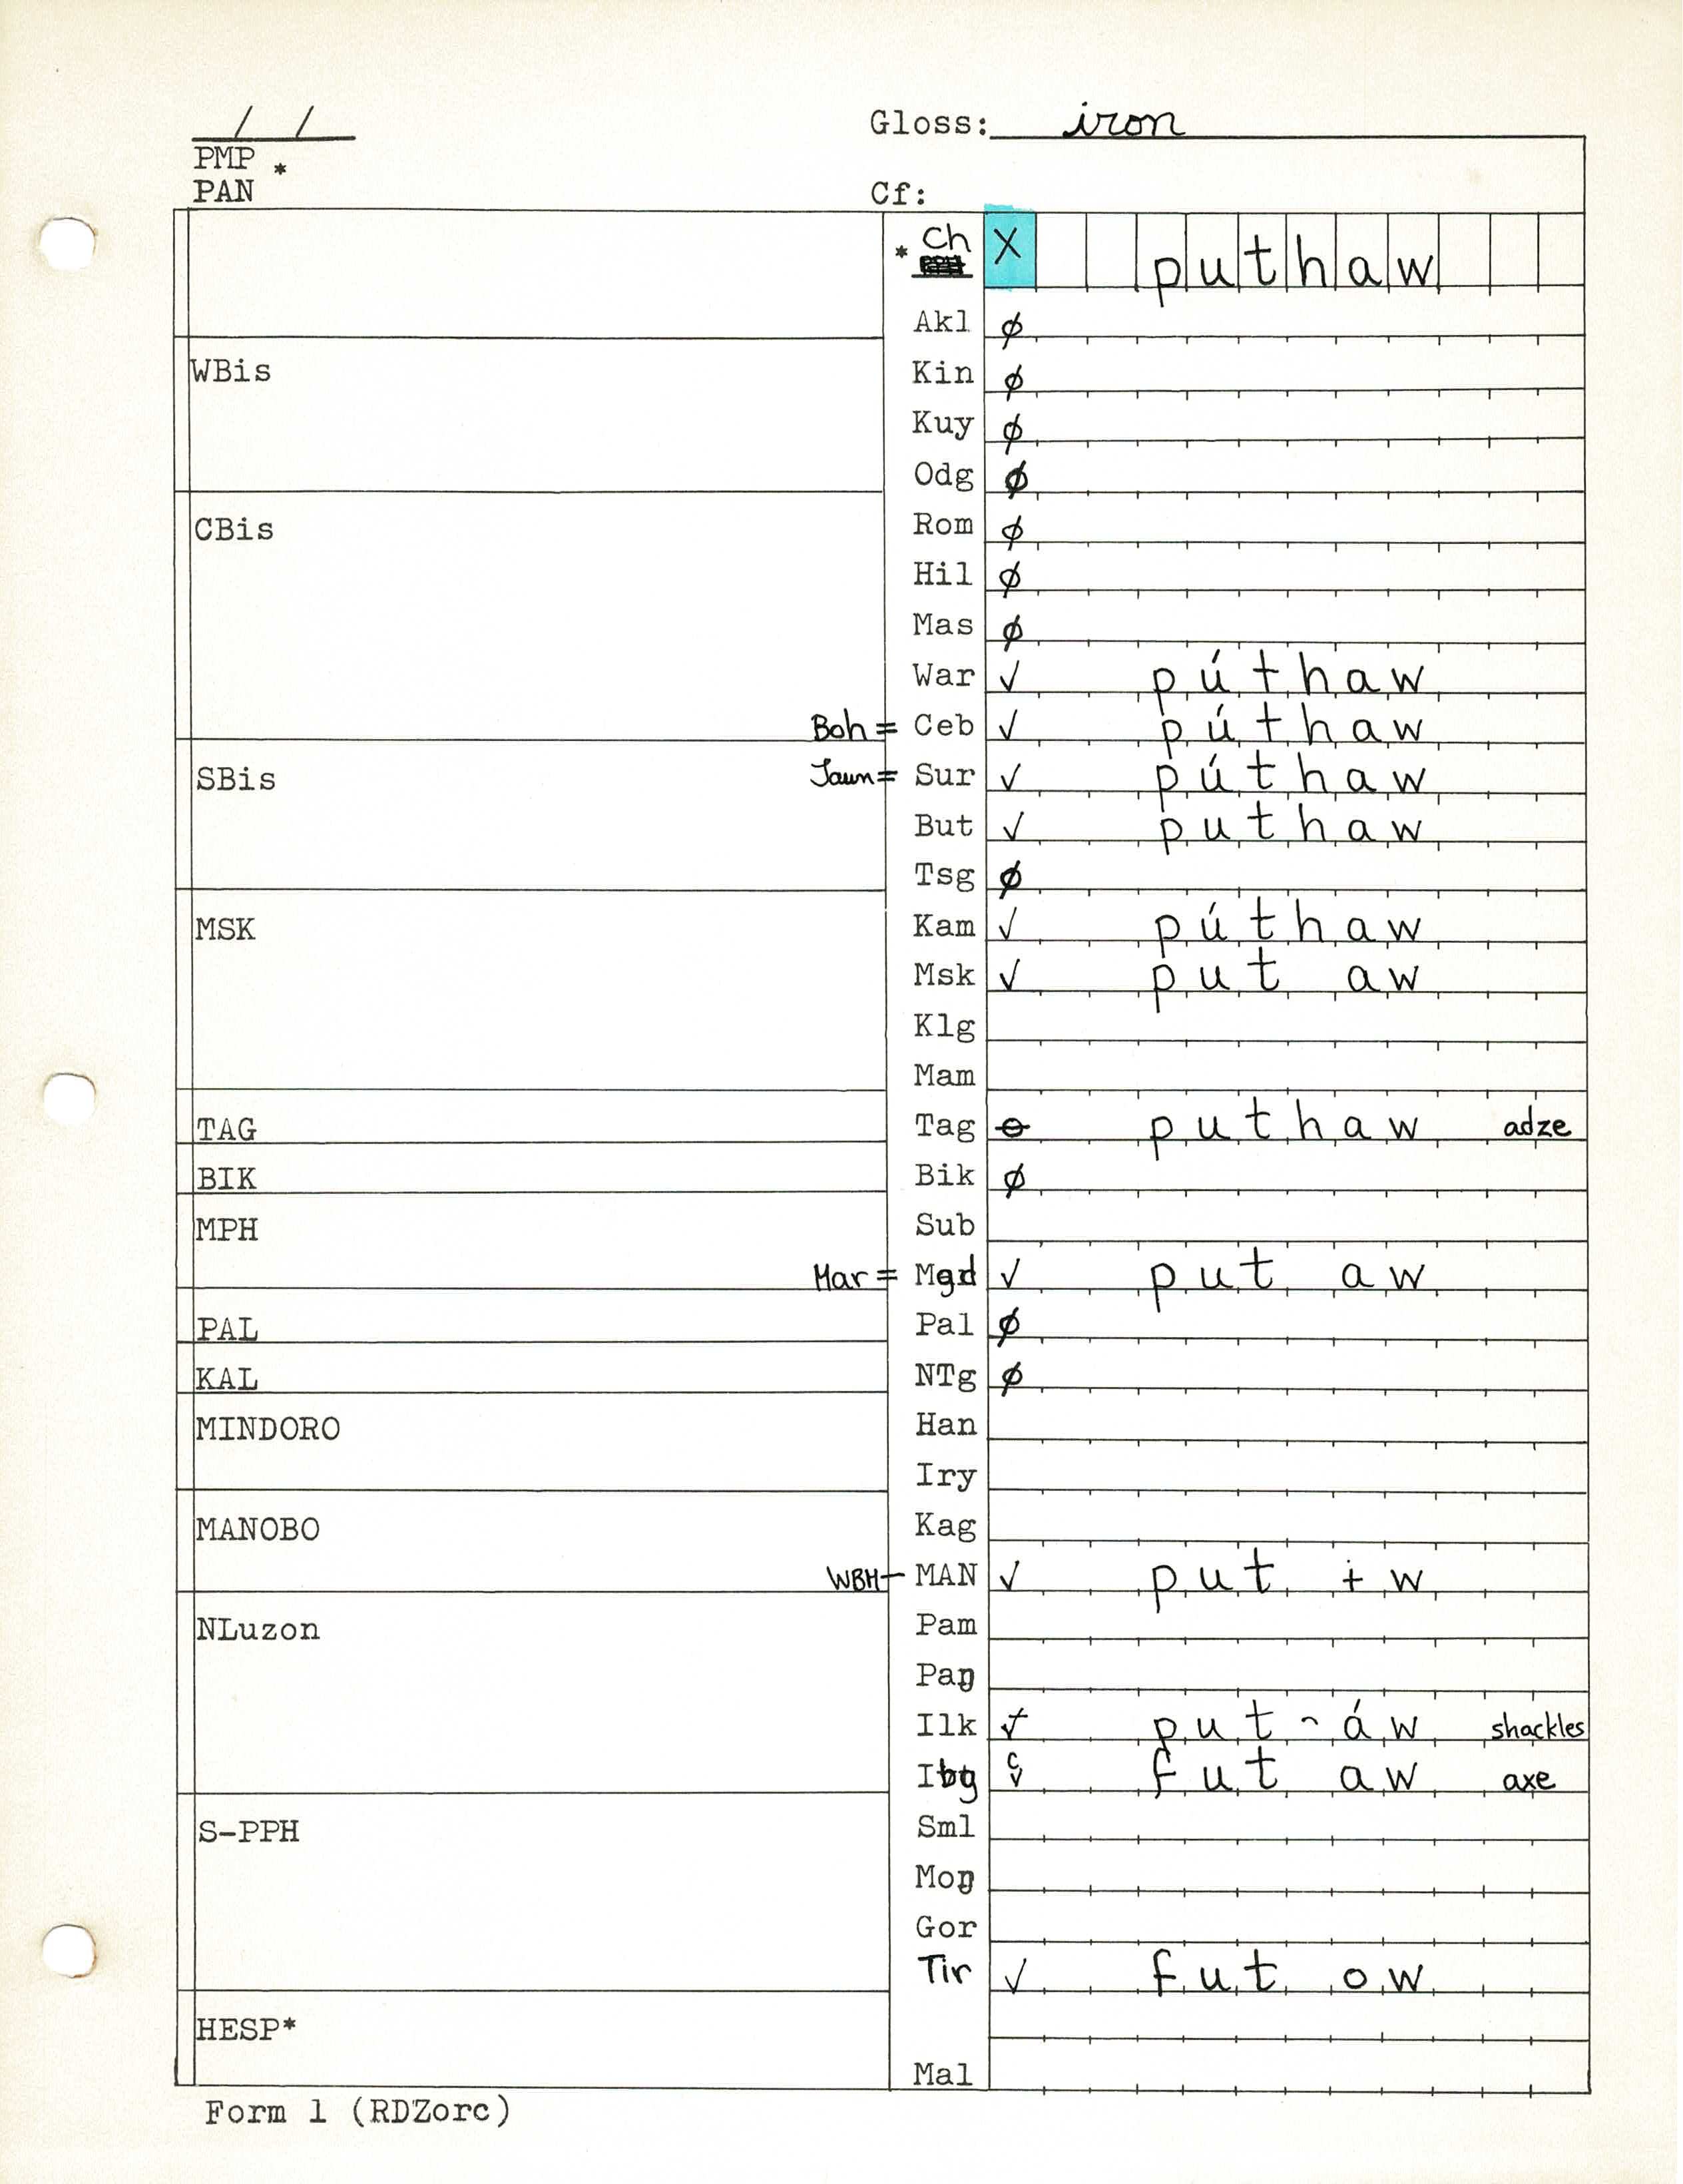 / /
Gloss: iron
PMP *
PAN
Cf:
* Ch X puthaw
Akl ∅
WBis
Kin ∅
Kuy ∅
Odg ∅
CBis
Rom ∅
Hil ∅
Mas ∅
War ✓ púthaw
Boh = Ceb ✓ púthaw
SBis
Jaun = Sur ✓ púthaw
But ✓ puthaw
Tsg ∅
MSK
Kam ✓ púthaw
Msk ✓ put aw
Klg
Mam
TAG
Tag ⊖ puthaw adze
BIK
Bik ∅
MPH
Sub
Mar = Mgd ✓ put aw
PAL
Pal ∅
KAL
NTg ∅
MINDORO
Han
Iry
MANOBO
Kag
WBM - MAN ✓ put ɨw
NLuzon
Pam
Paŋ
Ilk ✓ put-áw shackles
Ibg c✓ fut aw axe
S-PPH
Sml
Moŋ
Gor
Tir ✓ fut ow
HESP*
Mal
Form 1 (RDZorc)